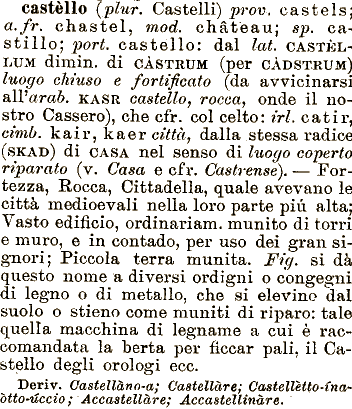 castèllo (plur. Castelli) prov. castels;
a.fr. chastel, mod. château; sp. ca-
stillo; port. castello: dal lat. CASTÈL-
LUM dimin. di CÀSTRUM (per CÀDSTRUM)
luogo chiuso e fortificato (da avvicinarsi
all'arab. KASR castello, rocca, onde il no-
stro Cassero), che cfr. col celto: irl. catir,
cimb. kair, kaer città, dalla stessa radice
(SKAD) di CASA nel senso di luogo coperto
riparato (v. Casa e cfr. Castrense). — For-
tezza, Rocca, Cittadella, quale avevano le
città medioevali nella loro parte piú alta;
Vasto edifizio, ordinariam. munito di torri
e muro, e in contado, per uso dei gran si-
gnori; Piccola terra munita. Fig. si dà
questo nome a diversi ordigni o congegni
di legno o di metallo, che si elevino dal
suolo o stieno come muniti di riparo: tale
quella macchina di legname a cui è rac-
comandata la berta per ficcar pali, il Ca-
stello degli orologi ecc.
Deriv. Castellàno-a; Castellàre; Castellètto-ína-
òtto-úccio; Accastellàre; Accastellinàre.